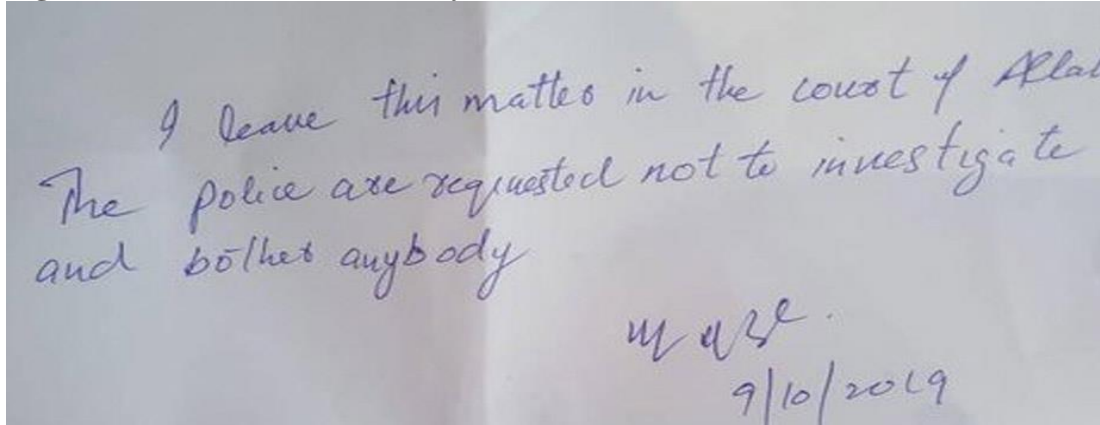 I leave this matter in the court of Alla
The police are requested not to investigate
and bother anybody
9/10/2019